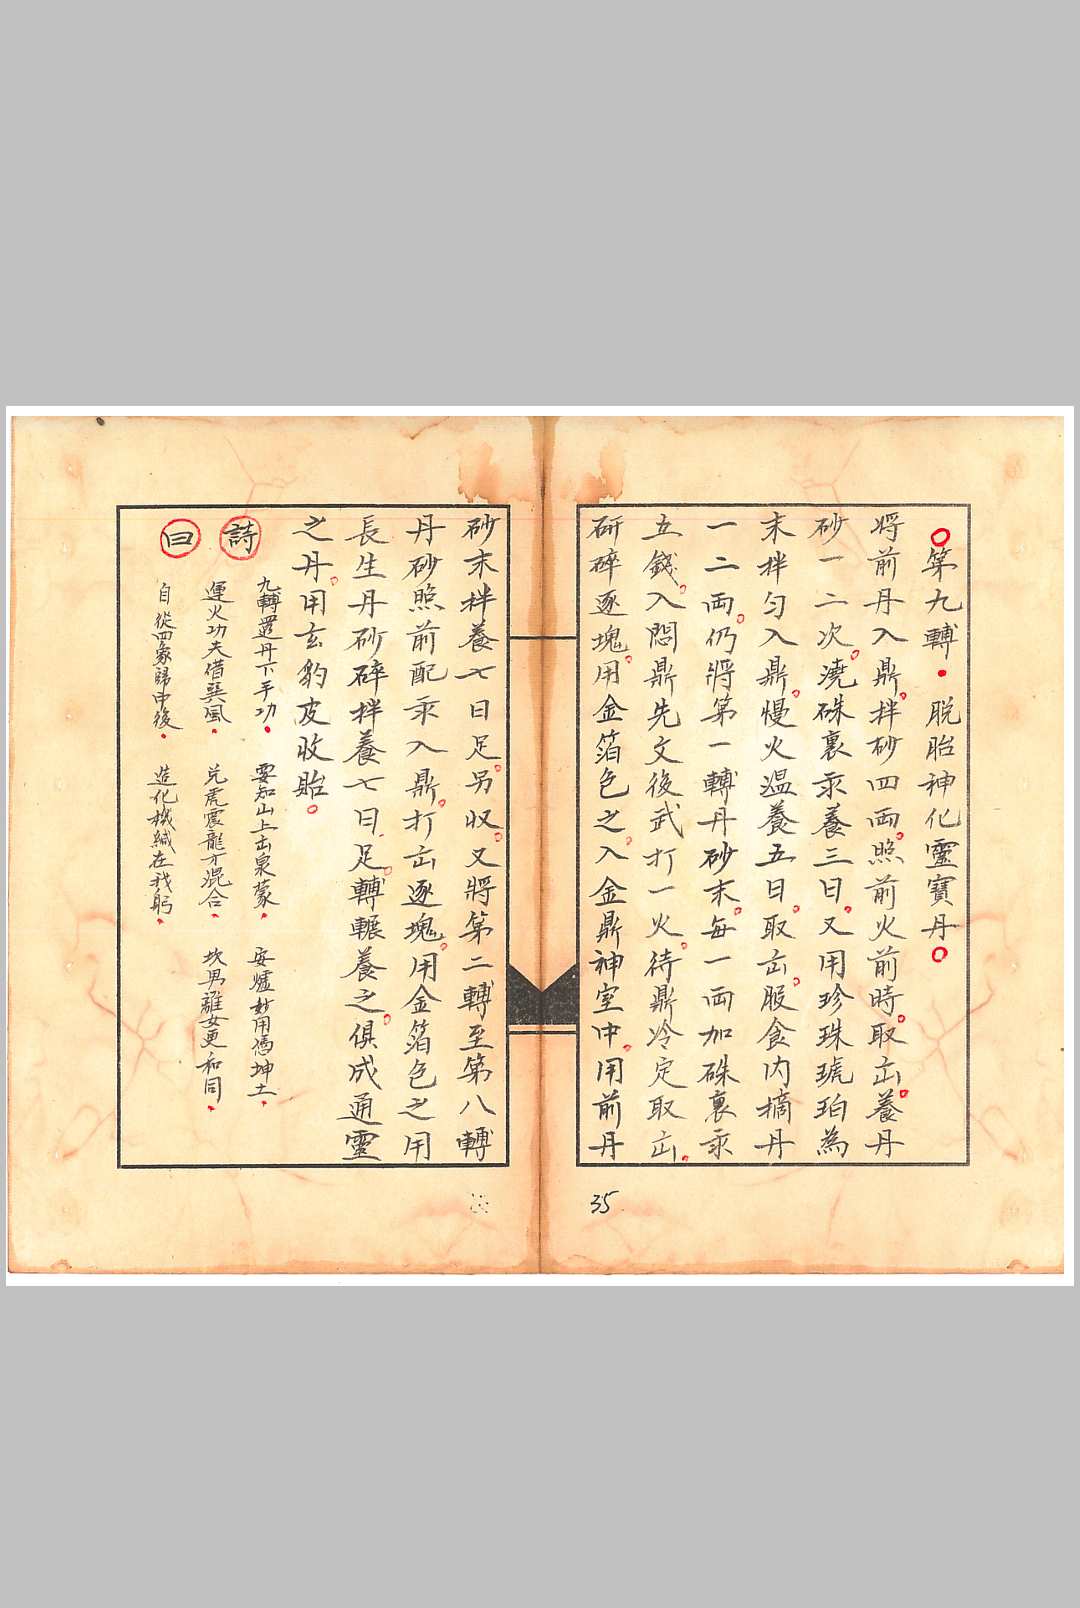 ○第九轉·脫胎神化靈寶丹○
將前丹入鼎。拌砂四両。照前火前時。取出。養丹
砂一二次。澆硃裏汞養三日。又用珍珠琥珀為
末拌匀入鼎。慢火温養五日。取出。服食内摘丹
一二両。仍將第一轉丹砂末。每一両加硃裏汞
五錢。入悶鼎先文後武打一火。待鼎冷定取出。
研碎逐塊。用金箔色之。入金鼎神室中。用前丹
砂末拌養七日足。另收。又將第二轉至第八轉
丹砂照前配汞入鼎。打出逐塊。用金箔色之用
長生丹砂碎拌養七日。足。轉輾養之。俱成通靈
之丹。用玄豹皮收貽。
詩曰
九轉還丹下手功· 要知山上出泉蒙· 安爐妙用憑坤土·
運火功夫借巽風· 兌虎震龍才混合· 坎男離女更和同·
自從四象歸中後· 造化機緘在我躬·
35